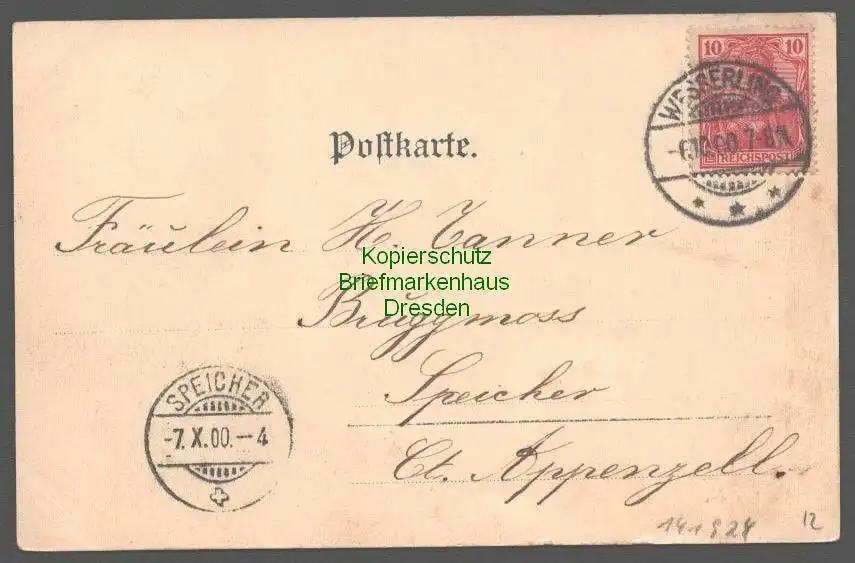 10 10
REICHSPOST
WESSERLING
7-8N
Postkarte.
Fräulein H. Tanner
Kopierschutz
Briefmarkenhaus
Dresden
Bruggmoos
Speicher
Ct. Appenzell.
SPEICHER
-7.X.00.-4
141924
12